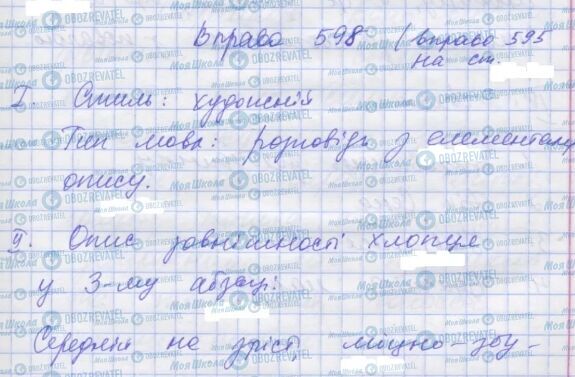 Вправа 598 (вправа 595
на ст.
I. Стиль: художній
Тип мовл: розповідь з елементами
опису.
II. Опис зовнішності хлопця
у 3-му абзаці:
Середній на зріст, міцно збу-